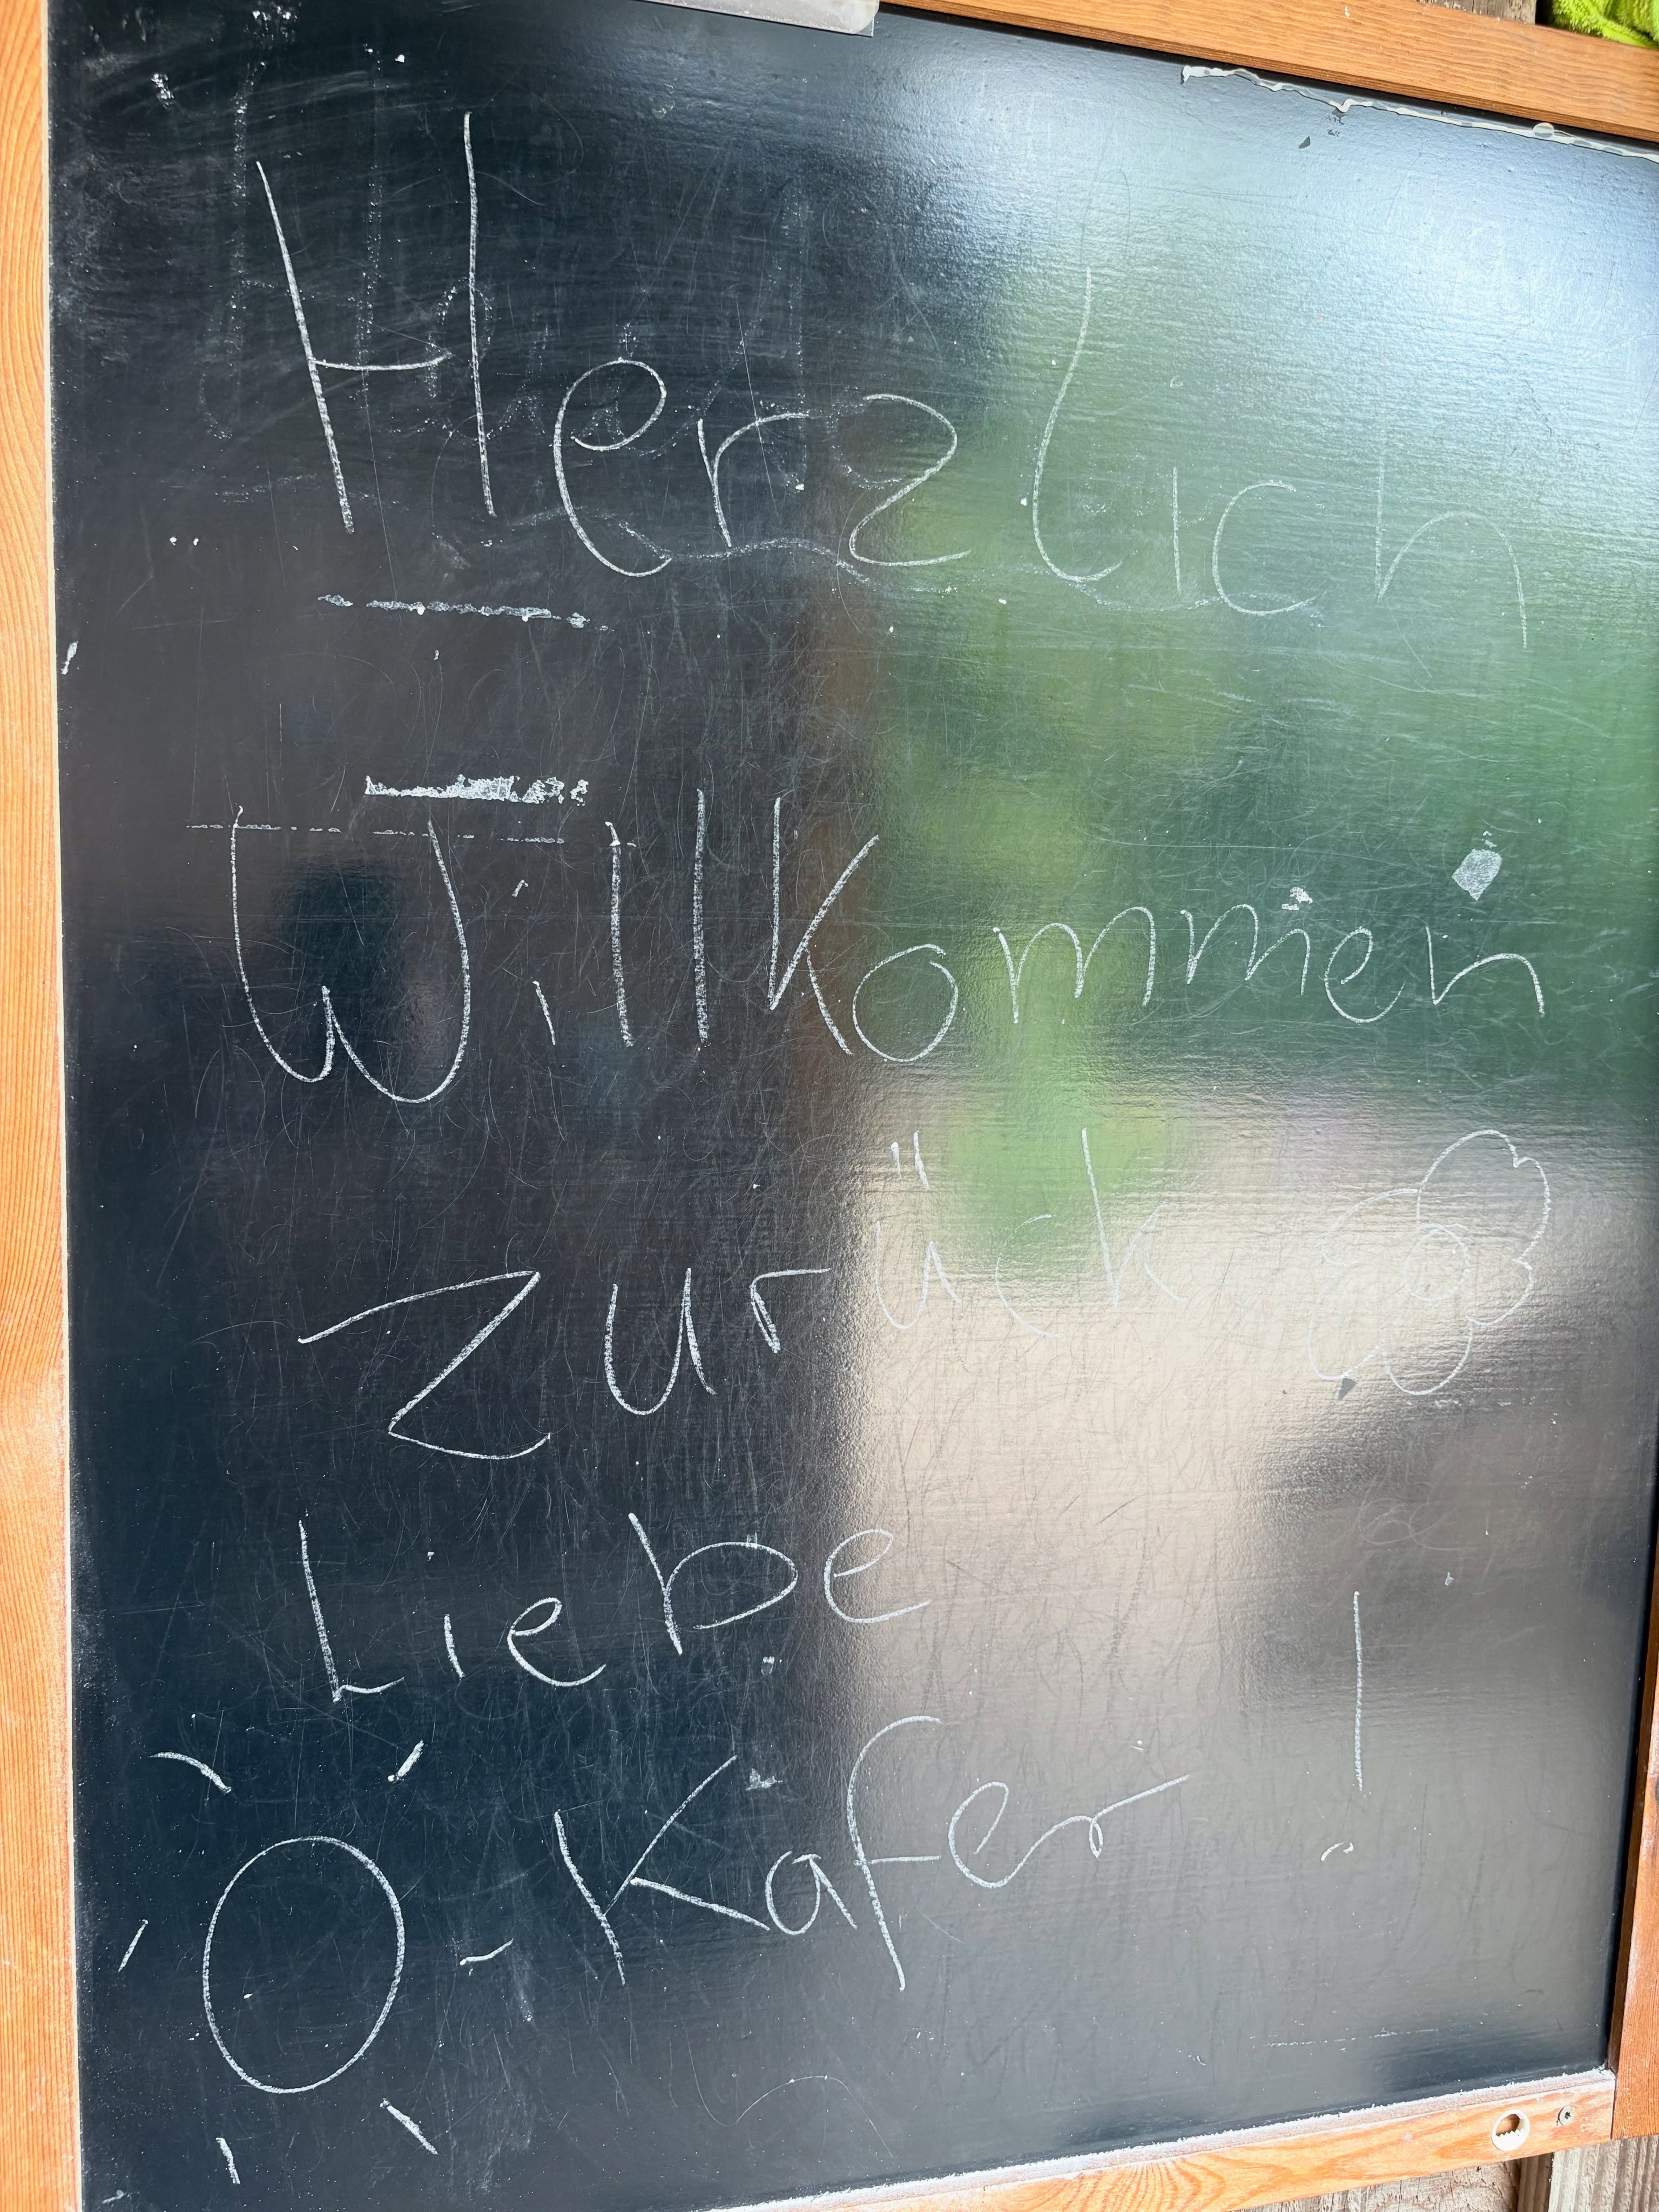 Herzlich
Willkommen
Zurück
Liebe
O-Käfer!